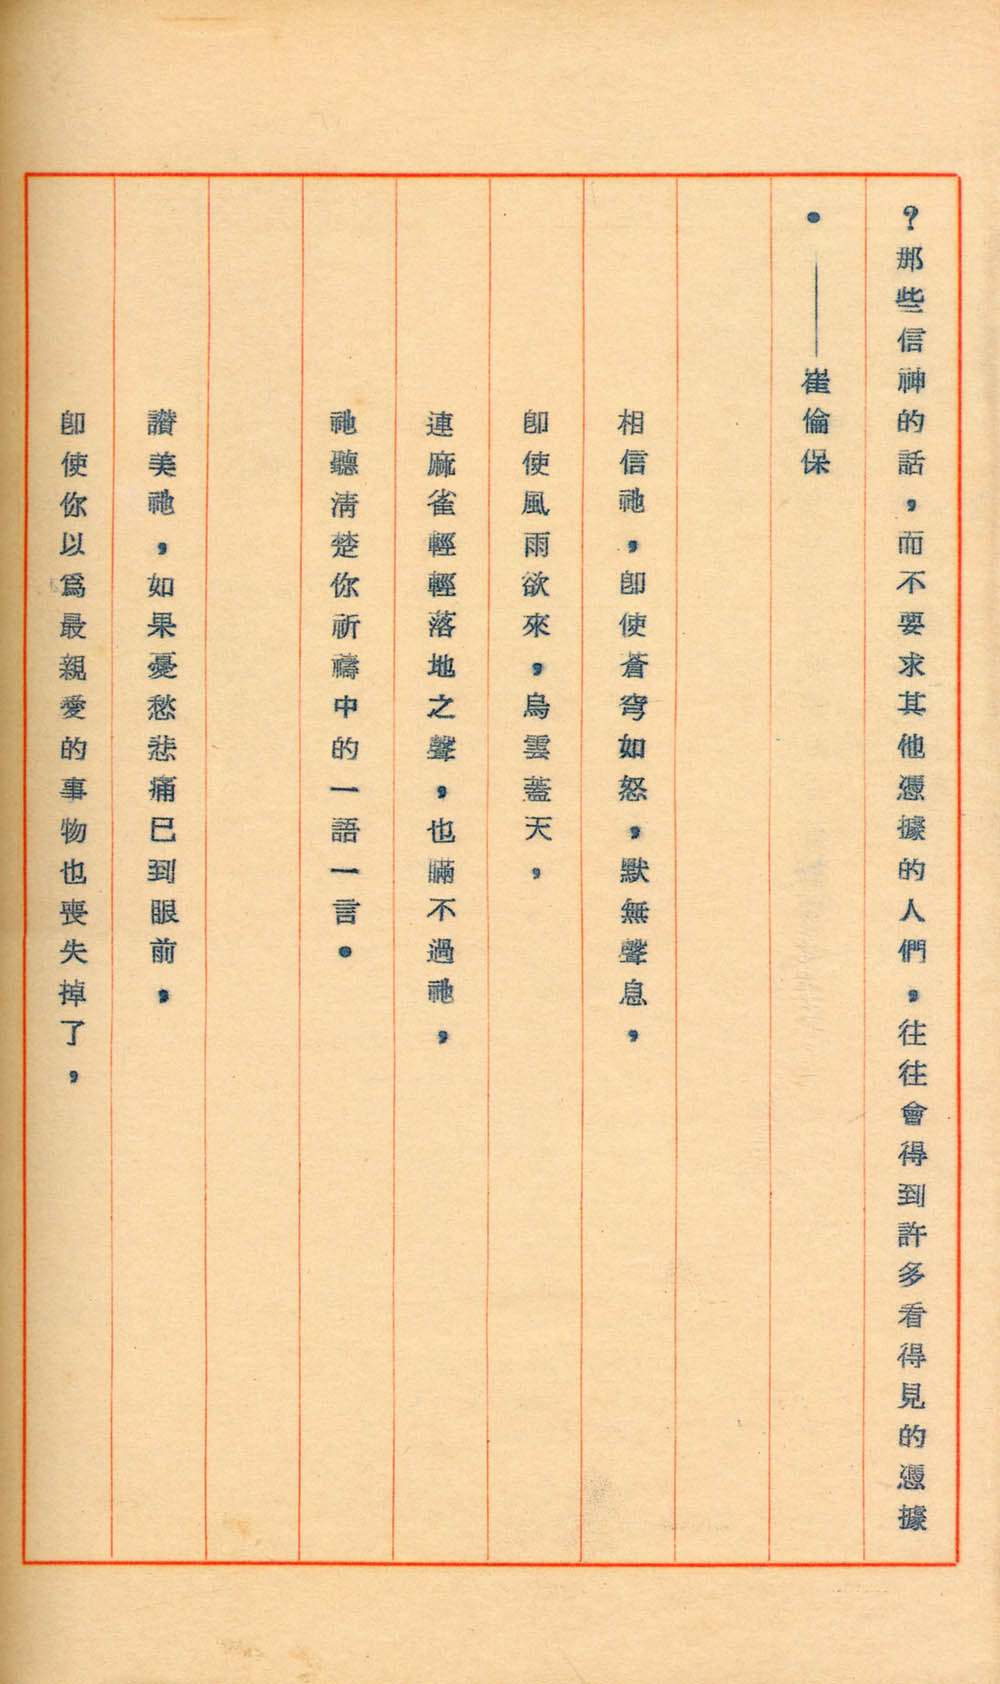 ？那些信神的話，而不要求其他憑據的人們，往往會得到許多看得見的憑據
。——崔倫保
相信祂，卽使蒼穹如怒，默無聲息，
卽使風雨欲來，烏雲蓋天，
連麻雀輕輕落地之聲，也瞞不過祂，
祂聽淸楚你祈禱中的一語一言。
讃美祂，如果憂愁悲痛已到眼前，
卽使你以爲最親愛的事物也喪失掉了，